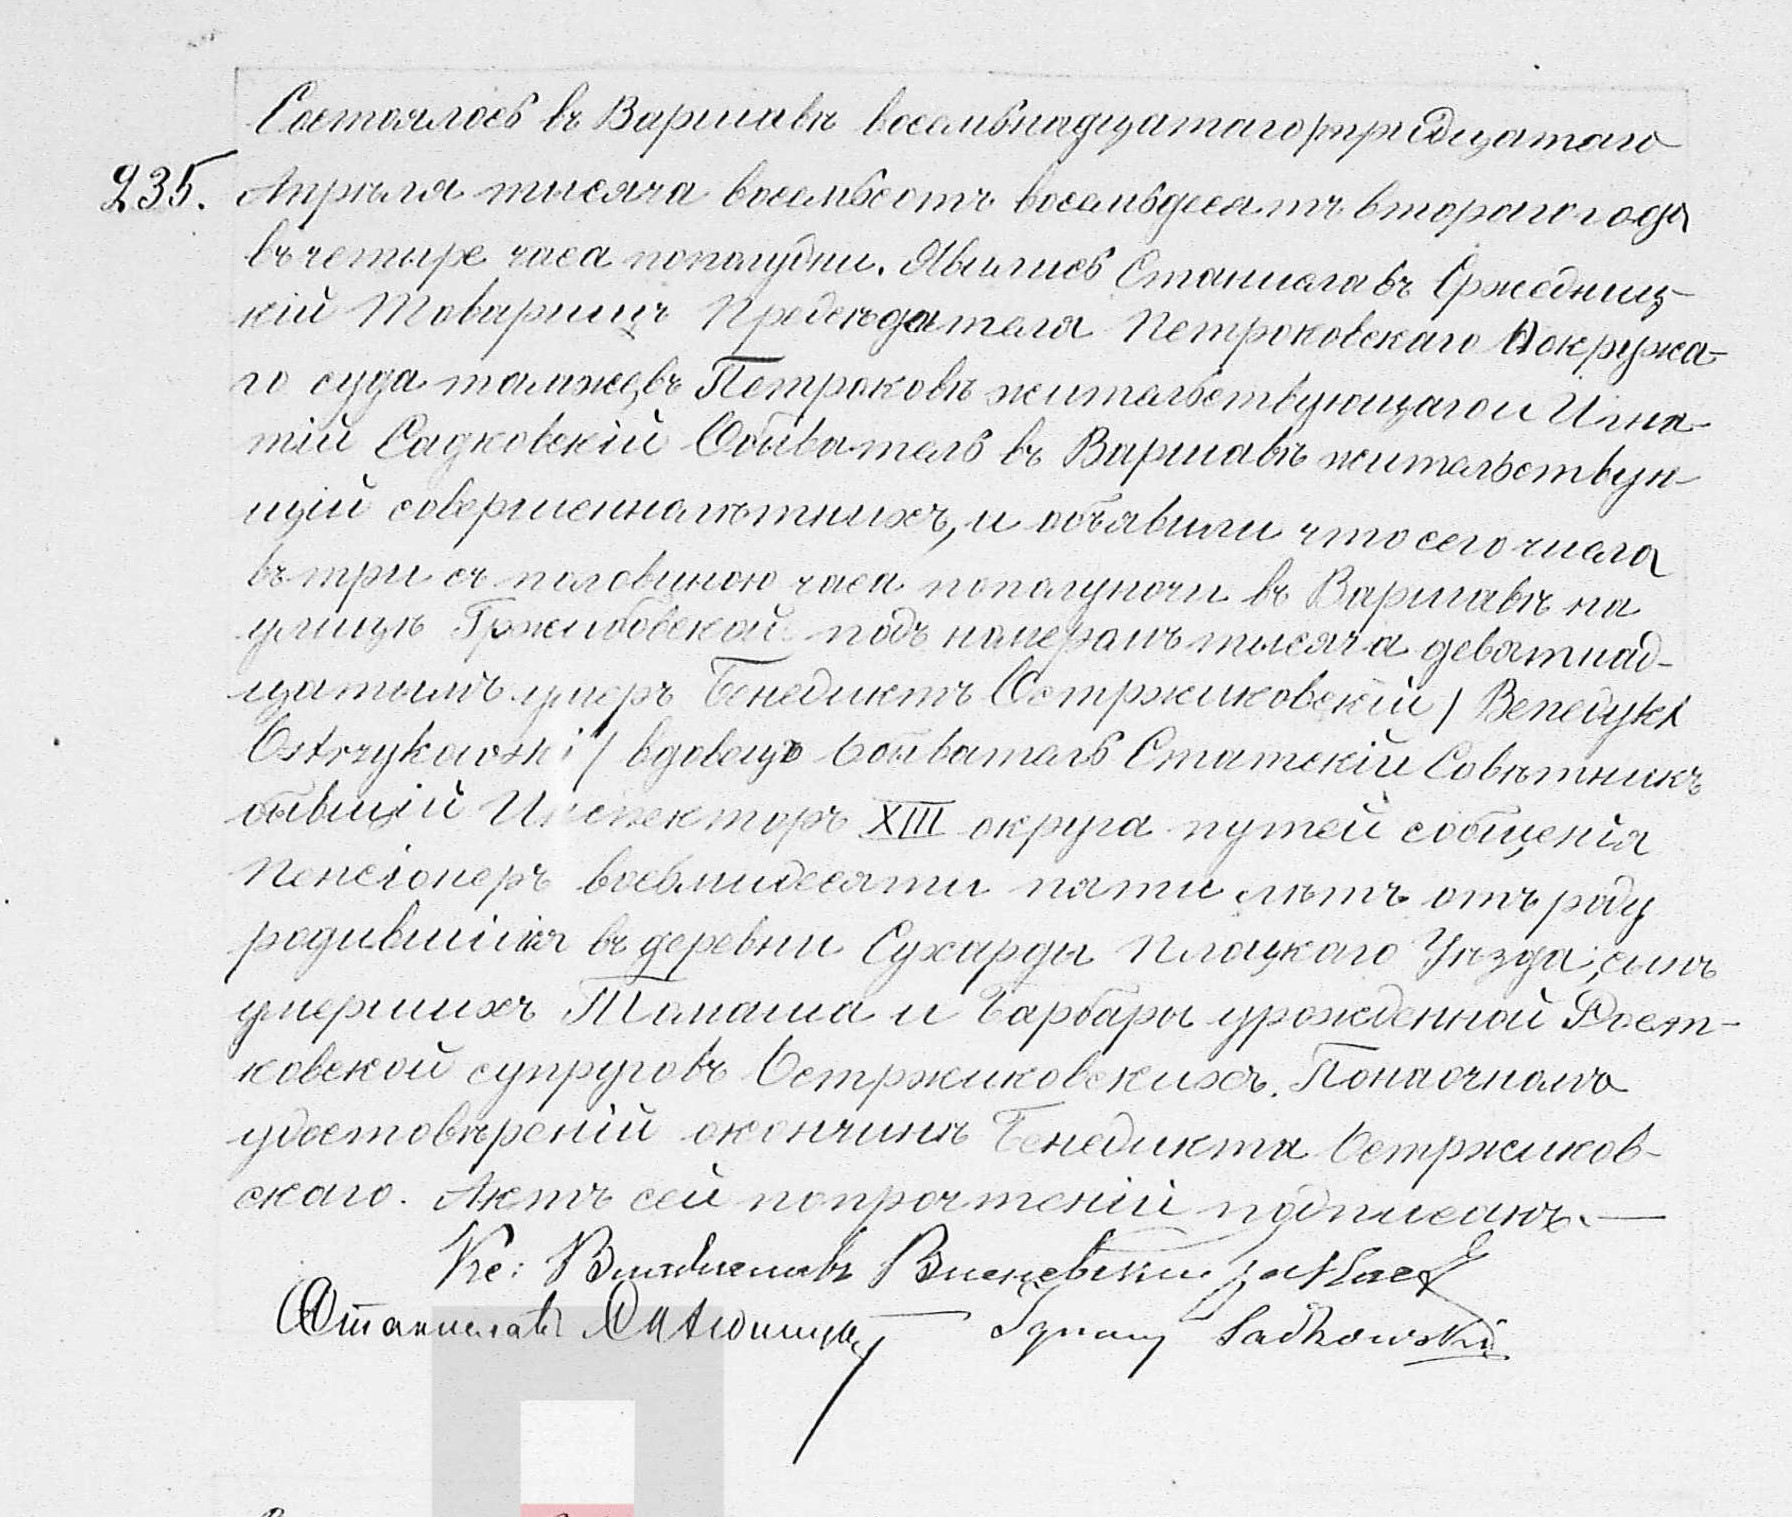 Состоялось въ Варшавѣ восемьнадцатаго/тридцатаго
235. Апрѣля тысяча восемьсотъ восемьдесятъ втораго года
въ четыре часа пополудни. Явились Станиславъ Сржедниц-
кій Товарищъ Предсѣдателя Петроковскаго Окружна-
го суда тамже въ Петроковѣ жительствующаго и Игна-
тій Садковскій Обыватель въ Варшавѣ жительствую-
щій совершеннолѣтнихъ, и объявили что сего числа
въ три съ половиною часа пополуночи въ Варшавѣ на
улицѣ Гржибовской подъ номеромъ тысяча девятнад-
цатымъ умеръ Бенедиктъ Остржиковскій / Benedykt
Ostrzykowski / вдовецъ Обыватель Статскій Совѣтникъ
бывшій Инспекторъ XIII округа путей сообщенія
Пенсіонеръ восьмидесяти пяти лѣтъ отъ роду
родившійся въ деревни Сухарды Плоцкаго Уѣзда, сынъ
умершихъ Томаша и Барбары урожденной Рост-
ковской супруговъ Остржиковскихъ. По наочномъ
удостовѣреній окончинѣ Бенедикта Остржиков-
скаго. Актъ сей по прочтеній подписанъ.—
Кс: Владиславъ
Станиславъ Ignacy Sadkowski